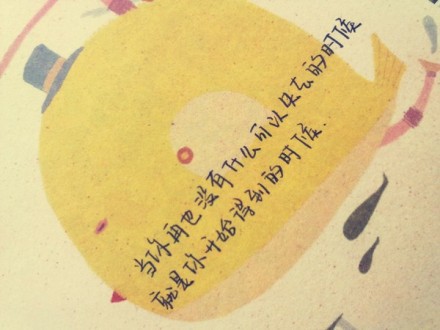 当你再也没有什么可以失去的时候
就是你开始得到的时候.